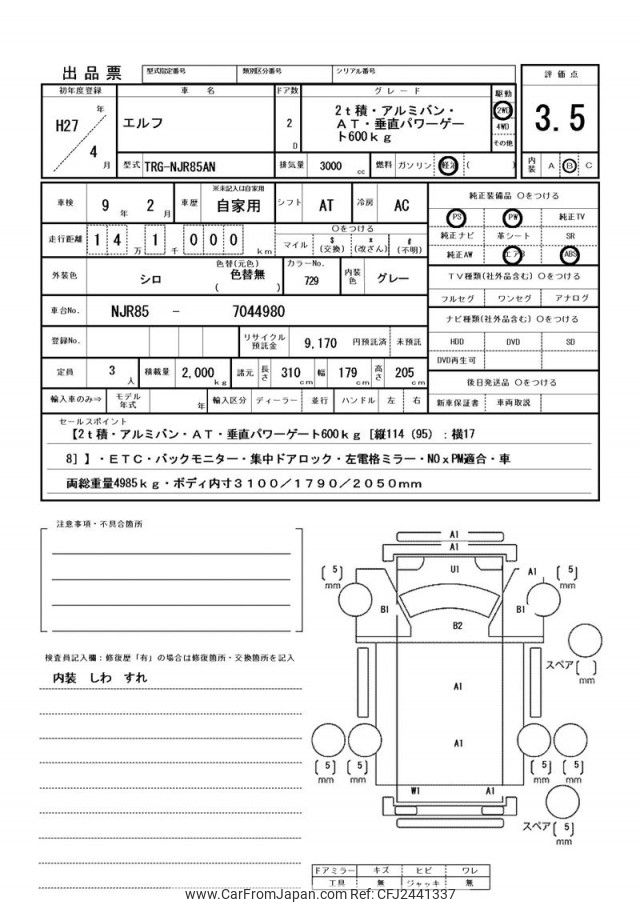 出品票 型式指定番号 類別区分番号 シリアル番号
評価点
3.5
内装 A B C
初年度登録 車名 ドア数 グレード 駆動
H27年 4月 エルフ 2D 2t積・アルミバン・
AT・垂直パワーゲー
ト600kg
2WD
4WD
その他
型式 TRG-NJR85AN 排気量 3000cc 燃料 ガソリン 軽油 ( )
車検 9年 2月 車歴 ※未記入は自家用 自家用 シフト AT 冷房 AC
走行距離 14万1千000km ○をつける
マイル $(交換) *(改ざん) #(不明)
外装色 シロ 色替(元色) 色替無 ( ) カラーNo. 729 内装色 グレー
車台No. NJR85 - 7044980
登録No. リサイクル預託金 9,170 円預託済 未預託
定員 3人 積載量 2,000kg 諸元 長さ 310cm 幅 179cm 高さ 205cm
輸入車のみ⇒ モデル年式 年 輸入区分 ディーラー 並行 ハンドル 左 右
純正装備品 ○をつける
PS PW 純正TV
純正ナビ 革シート SR
純正AW エアB ABS
TV種類(社外品含む) ○をつける
フルセグ ワンセグ アナログ
ナビ種類(社外品含む) ○をつける
HDD DVD SD
DVD再生可
後日発送品 ○をつける
新車保証書 車両取説
セールスポイント
【2t積・アルミバン・AT・垂直パワーゲート600kg[縦114(95):横17
8]】・ETC・バックモニター・集中ドアロック・左電格ミラー・NOxPM適合・車
両総重量4985kg・ボディ内寸3100/1790/2050mm
注意事項・不具合箇所
検査員記入欄:修復歴「有」の場合は修復箇所・交換箇所を記入
内装 しわ すれ
A1
A1
[5]mm U1 A1 [5]mm
B1 B1
B2
スペア[ ]mm
A1
A1
[5]mm [5]mm [5]mm [5]mm
W1 A1
スペア[5]mm
ドアミラー キズ ヒビ ワレ
工具 無 ジャッキ 無
www.CarFromJapan.com CFJ2441337